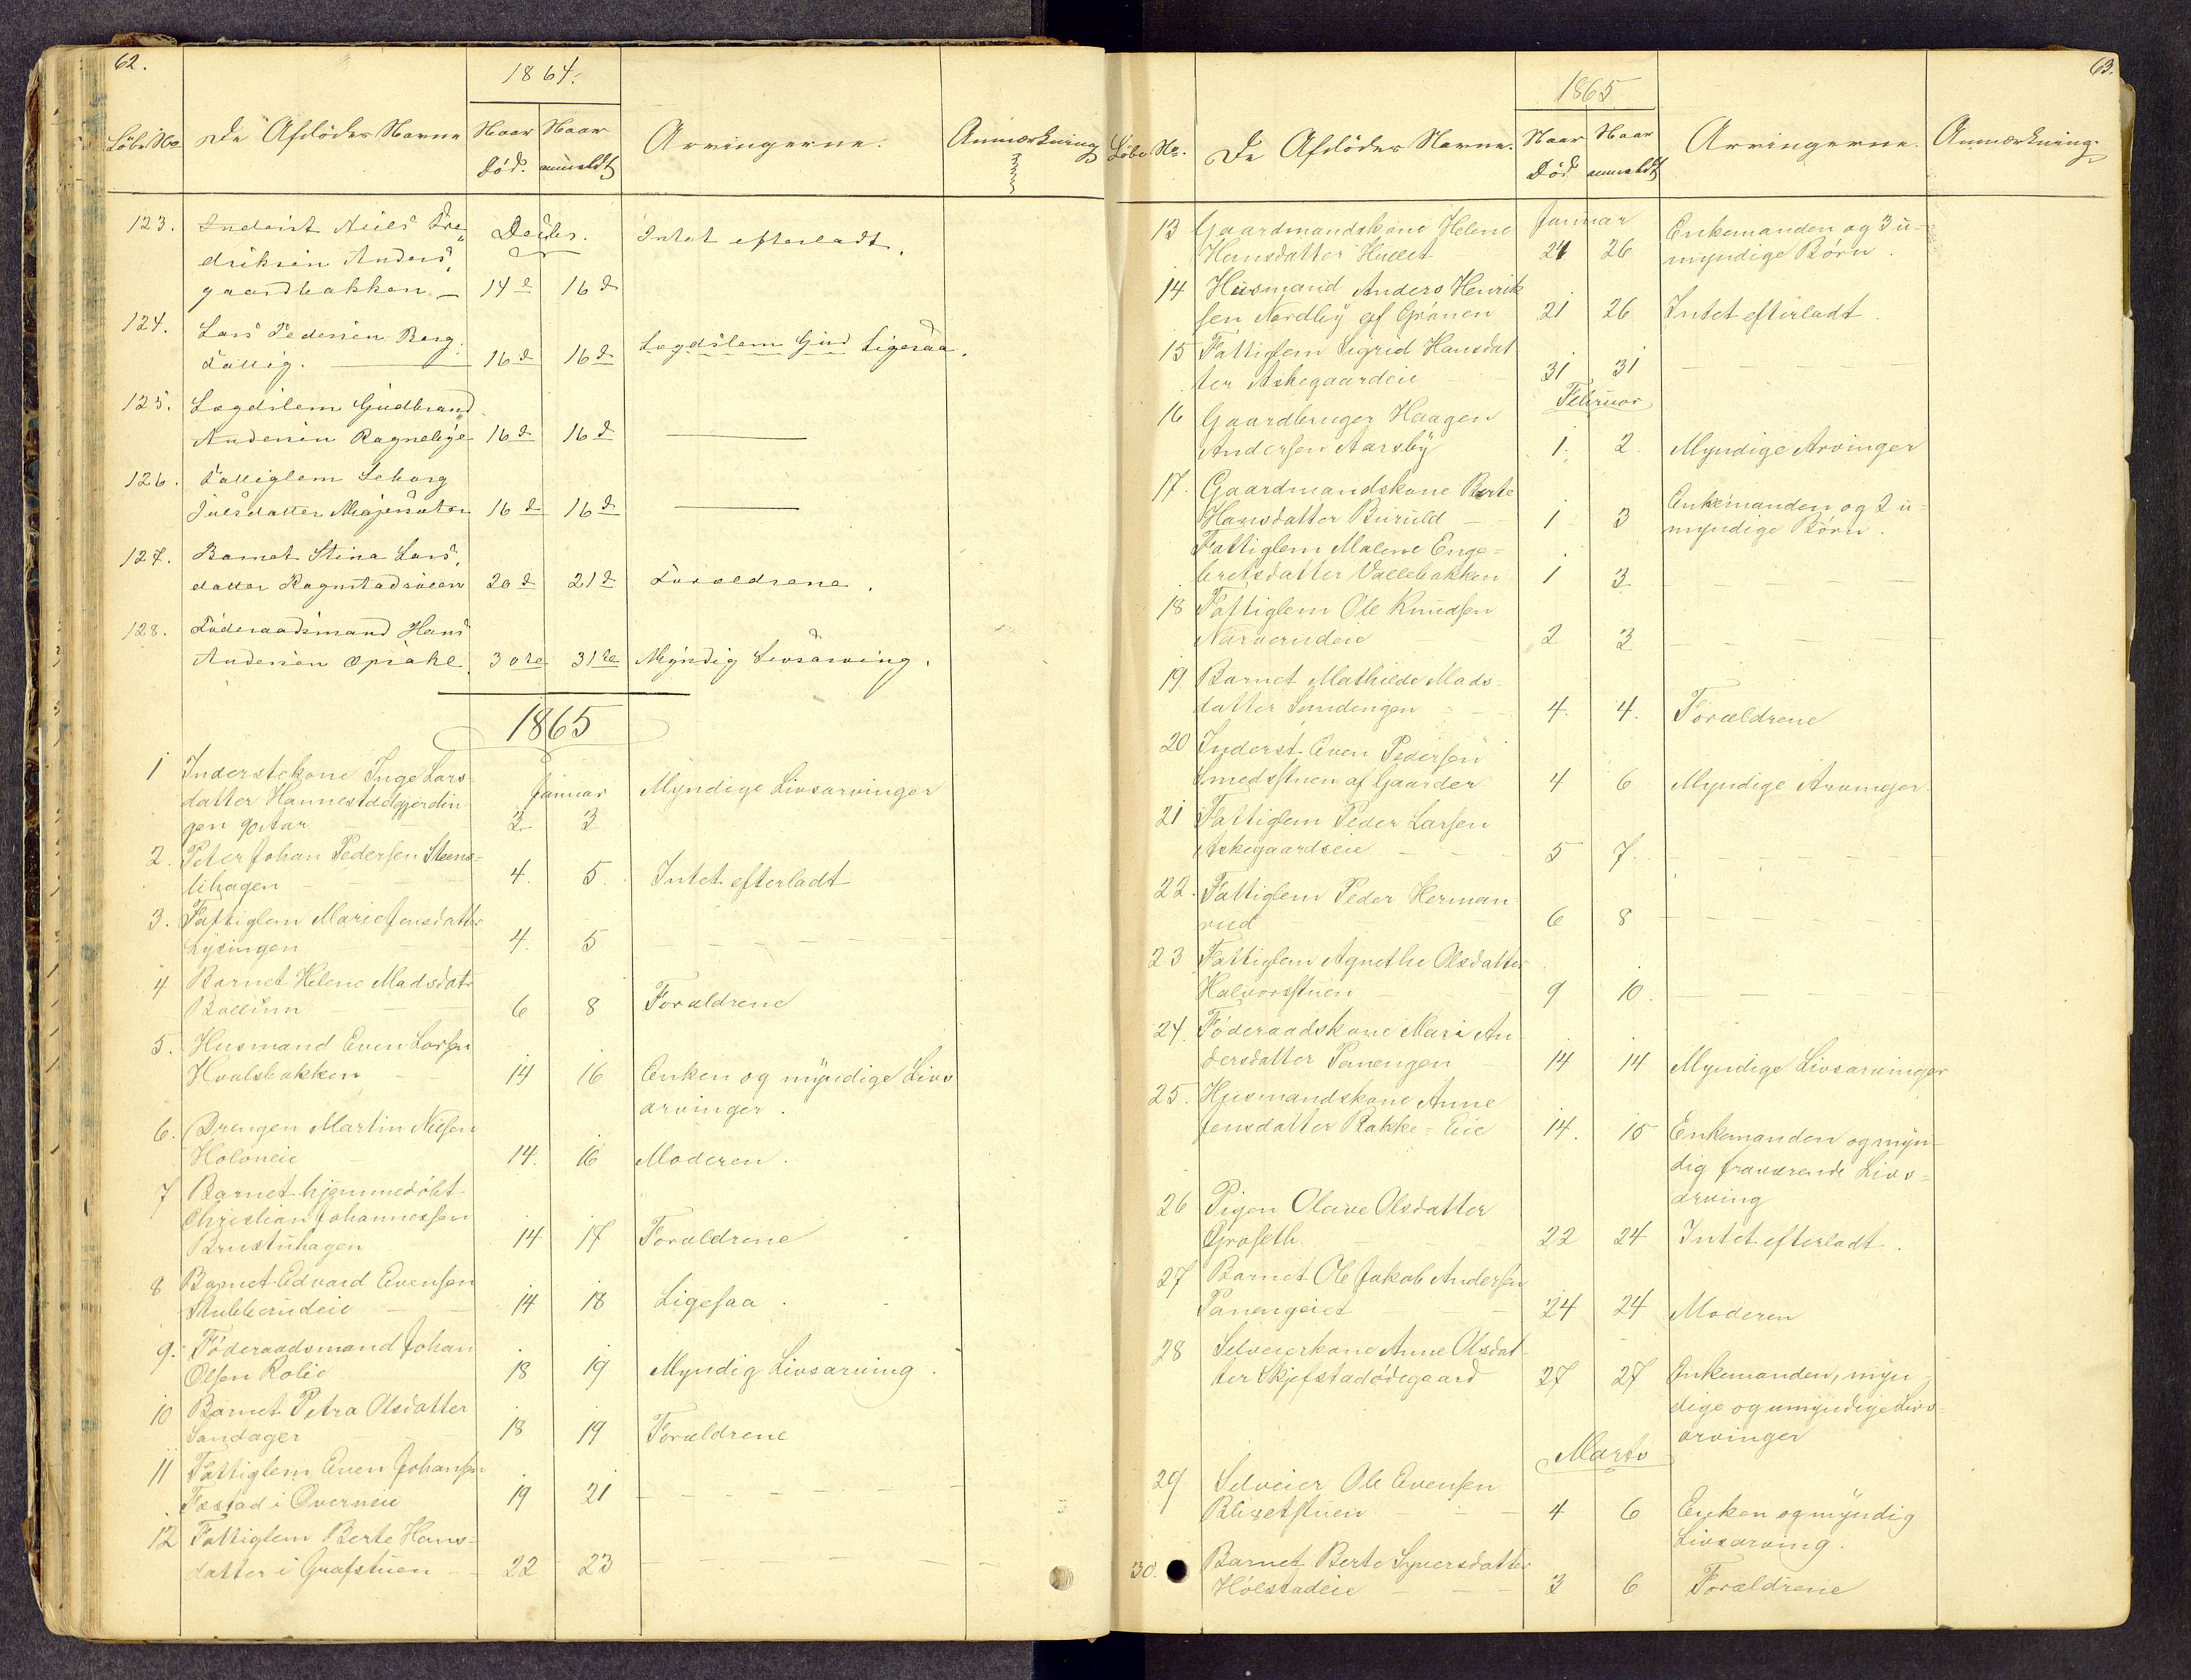 62.
1864.
Løbe No
De Afdødes Navne
Naar Død.
Naar anmeldt
Arvingerne.
Anmærkning
123. Inderst Niels Fre
driksen Anders
gaardbakken
Decbr.
14de 16de
Intet efterladt.
124. Lars Pedersen Berg
Fattig.
16de 16de
Lægdslem Gud Ligesaa.
125. Lægdslem Gudbrand
Andersen Ragnelye 16de 16de
126. Fattiglem Seborg
Julsdatter Majersæter 16de 16de
127. Barnet Stina Lars
datter Ragnstadsveen 20de 21de Forældrene.
128. Føderaadsmand Hans
Andersen Opsahl 30te 31te Myndig Livsarving.
1865
1 Inderstekone Inge Lars-
datter Hannestadgjerdin
gen 90 Aar
Januar
2 3
Myndige Livsarvinger
2. Peter Johan Pedersen Steens-
lihagen 4. 5. Intet efterladt
3. Fattiglem Marie Jensdatter
Lysingen 4. 5
4 Barnet Helene Madsdatr
Bollum 6 8 Forældrene
5. Husmand Even Larsen
Hvalsbakken 14 16 Enken og myndige Livs
arvinger.
6. Drengen Martin Nilsen
Holoneie 14. 16 Moderen.
7 Barnet hjemmedøbt
Christian Johannessen
Brustuhagen 14 17 Forældrene
8 Barnet Edvard Evensen
Stubberudeie 14 18 Ligesaa.
9. Føderaadsmand Johan
Olsen Rolie 18 19 Myndig Livsarving.
10 Barnet Petra Olsdatter
Sandager 18 19 Forældrene
11 Fattiglem Even Johansen
Fæstad i Overneie 19 21
12 Fattiglem Berte Hans-
datter i Grafstuen 22 23
63.
1865
Løbe No.
De Afdødes Navne.
Naar Død
Naar anmeldt
Arvingerne.
Anmærkning.
13 Gaardmandskone Helene
Hansdatter Hullet
Januar
24 26
Enkemanden og 3 u-
myndige Børn.
14 Husmand Anders Henrik
sen Nordby af Grønen 21 26 Intet efterladt.
15 Fattiglem Sigrid Hansdat
ter Askegaardeie 31 31
Februar
16 Gaardbruger Haagen
Andersen Aarsby 1. 2. Myndige Arvinger
17. Gaardmandskone Berte
Hansdatter Buruld 1 3
Enkemanden og 2 u-
myndige Børn.
Fattiglem Malene Enge-
bretsdatter Vallebakken 1 3
18 Fattiglem Ole Knudsen
Narverudeie 2 3
19 Barnet Mathilde Mads-
datter Semdengen 4. 4. Forældrene
20 Inderst Even Pedersen
Smedsstuen af Gaarder 4 6 Myndige Arvinger.
21 Fattiglem Peder Larsen
Askegaardseie 5 7.
22. Fattiglem Peder Herman
rud 6 8
23 Fattiglem Agnethe Olsdatter
Halvorsstuen 9 10.
24. Føderaadskone Mari An
dersdatter Panengen 14 14 Myndige Livsarvinger
25. Husmandskone Anne
Jensdatter Bakke-Eie 14. 15 Enkemanden og myn-
dig fraværende Livs-
arving
26 Pigen Olave Olsdatter
Graseth 22 24 Intet efterladt.
27 Barnet Ole Jakob Andersen
Panengeiet 24 24 Moderen
28 Selveierkone Anne Olsdat
ter Skjefstadødegaard 27 27 Enkemanden, myn-
dige og umyndige Livs-
arvinger
Marts
29 Selveier Ole Evensen
Blixetstuen 4 6 Enken og myndig
Livsarving.
30. Barnet Berte Syversdatter
Hølstadeie 3 6 Forældrene